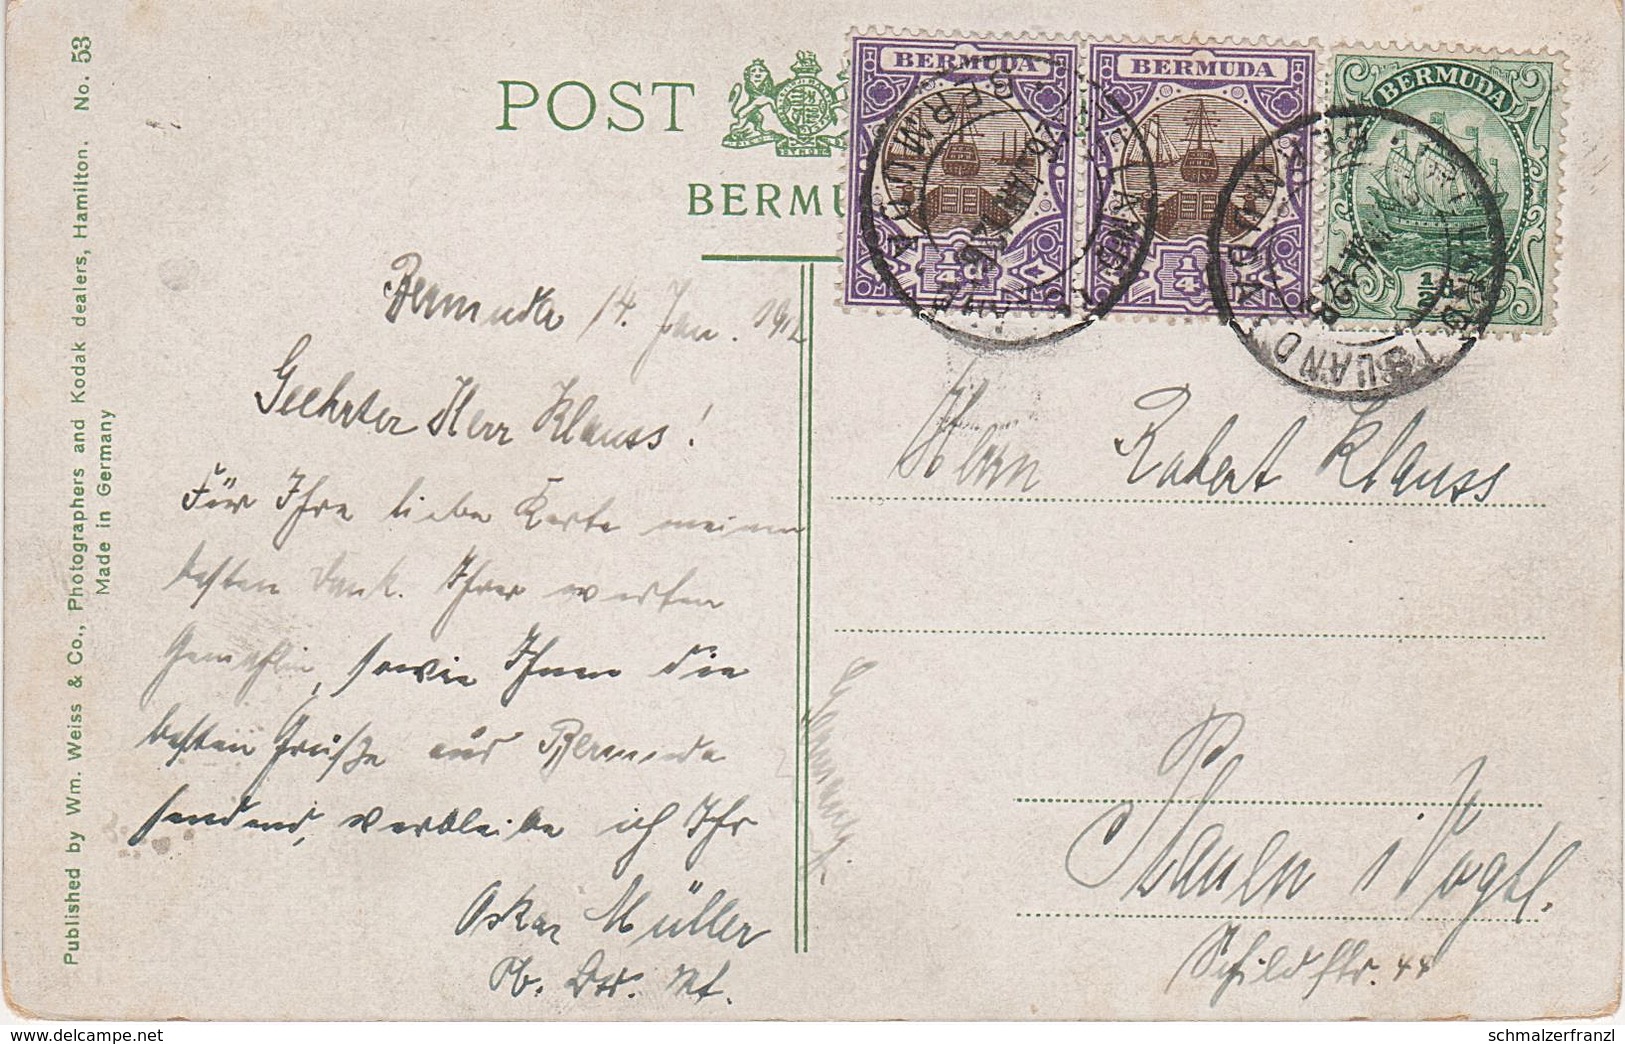 Published by Wm. Weiss & Co., Photographers and Kodak dealers, Hamilton. No. 53
Made in Germany
POST
BERMU
BERMUDA
1/4d
BERMUDA
1/4
BERMUDA
1/2
IRELAND ISLAND
BERMUDA
Bermuda 14. Jan. 1912
Geehrter Herr Klauss!
Für Ihre liebe Karte meinen
besten Dank. Ihrer werten
Gemahlin, sowie Ihnen die
besten Grüße aus Bermuda
sendend, verbleibe ich Ihr
Oskar Müller
Herrn Robert Klauss
Plauen i Vogtl.
Schildstr. 44
Germany.
www.delcampe.net
schmalzerfranzl